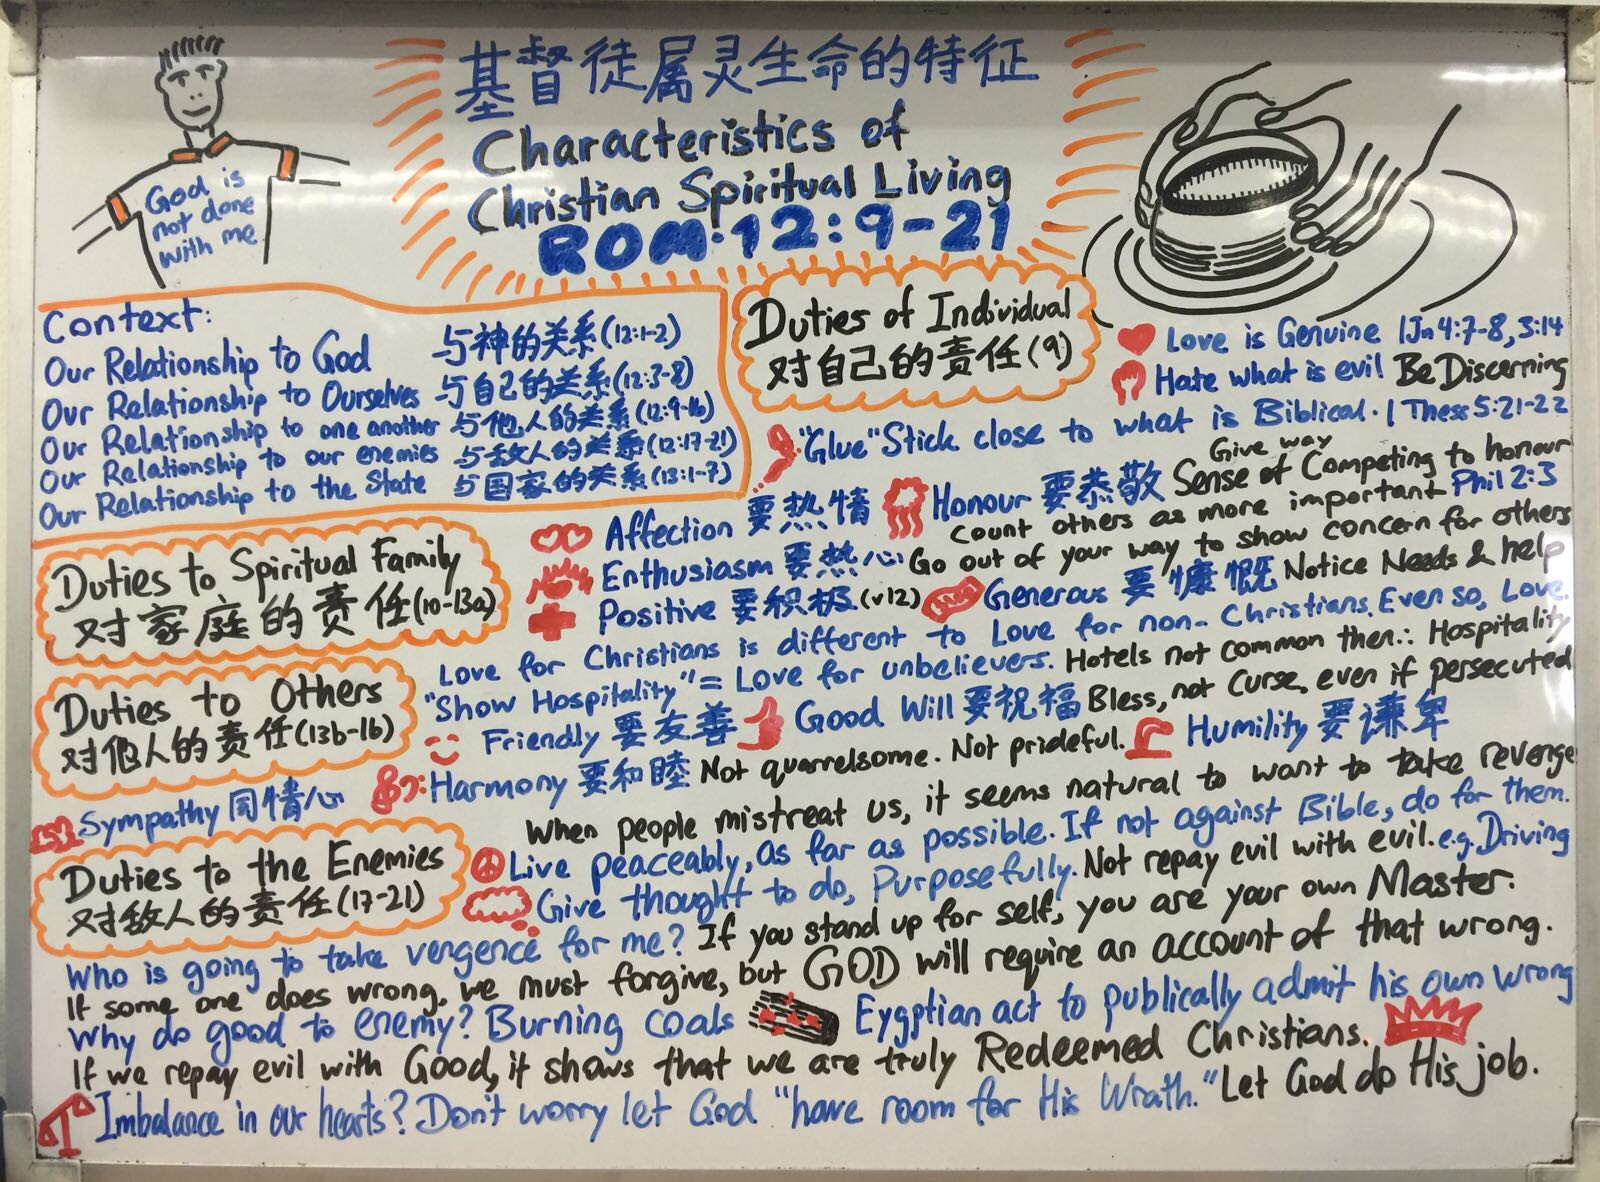 God is
not done
with me.
基督徒属灵生命的特征
Characteristics of
Christian Spiritual Living
ROM:12:9-21
Context:
Our Relationship to God 与神的关系(12:1-2)
Our Relationship to Ourselves 与自己的关系(12:3-8)
Our Relationship to one another 与他人的关系(12:9-16)
Our Relationship to our enemies 与敌人的关系(12:17-21)
Our Relationship to the State 与国家的关系(13:1-7)
Duties of Individual
对自己的责任(9)
Love is Genuine 1Jn 4:7-8, 3:14
Hate what is evil Be Discerning
"Glue" Stick close to what is Biblical. 1 Thess 5:21-22
Duties to Spiritual Family
对家庭的责任(10-13a)
Affection 要热情 Honour 要恭敬 Sense of Competing to honour
Give way
Count others as more important Phil 2:3
Enthusiasm 要热心 Go out of your way to show concern for others
Positive 要积极(v12) Generous 要慷慨 Notice Needs & help
Love for Christians is different to Love for non-Christians. Even so, Love.
Duties to Others
对他人的责任(13b-16)
"Show Hospitality" = Love for unbelievers. Hotels not common then ∴ Hospitality
Friendly 要友善 Good Will 要祝福 Bless, not Curse, even if persecuted
Sympathy 同情心 Harmony 要和睦 Not quarrelsome. Not prideful. Humility 要谦卑
Duties to the Enemies
对敌人的责任(17-21)
When people mistreat us, it seems natural to want to take revenge
Live peaceably, as far as possible. If not against Bible, do for them.
Give thought to do, Purposefully. Not repay evil with evil. e.g. Driving
Who is going to take vengence for me? If you stand up for self, you are your own Master.
If some one does wrong, we must forgive, but GOD will require an account of that wrong.
Why do good to enemy? Burning coals Eygptian act to publically admit his own wrong
If we repay evil with Good, it shows that we are truly Redeemed Christians.
Imbalance in our hearts? Don't worry let God "have room for His Wrath." Let God do His job.